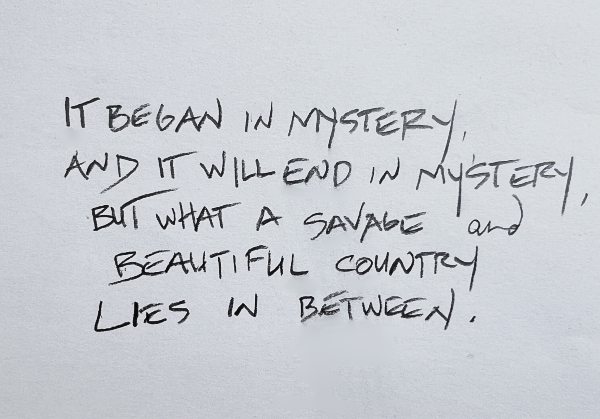 IT BEGAN IN MYSTERY,
AND IT WILL END IN MYSTERY,
BUT WHAT A SAVAGE and
BEAUTIFUL COUNTRY
LIES IN BETWEEN.